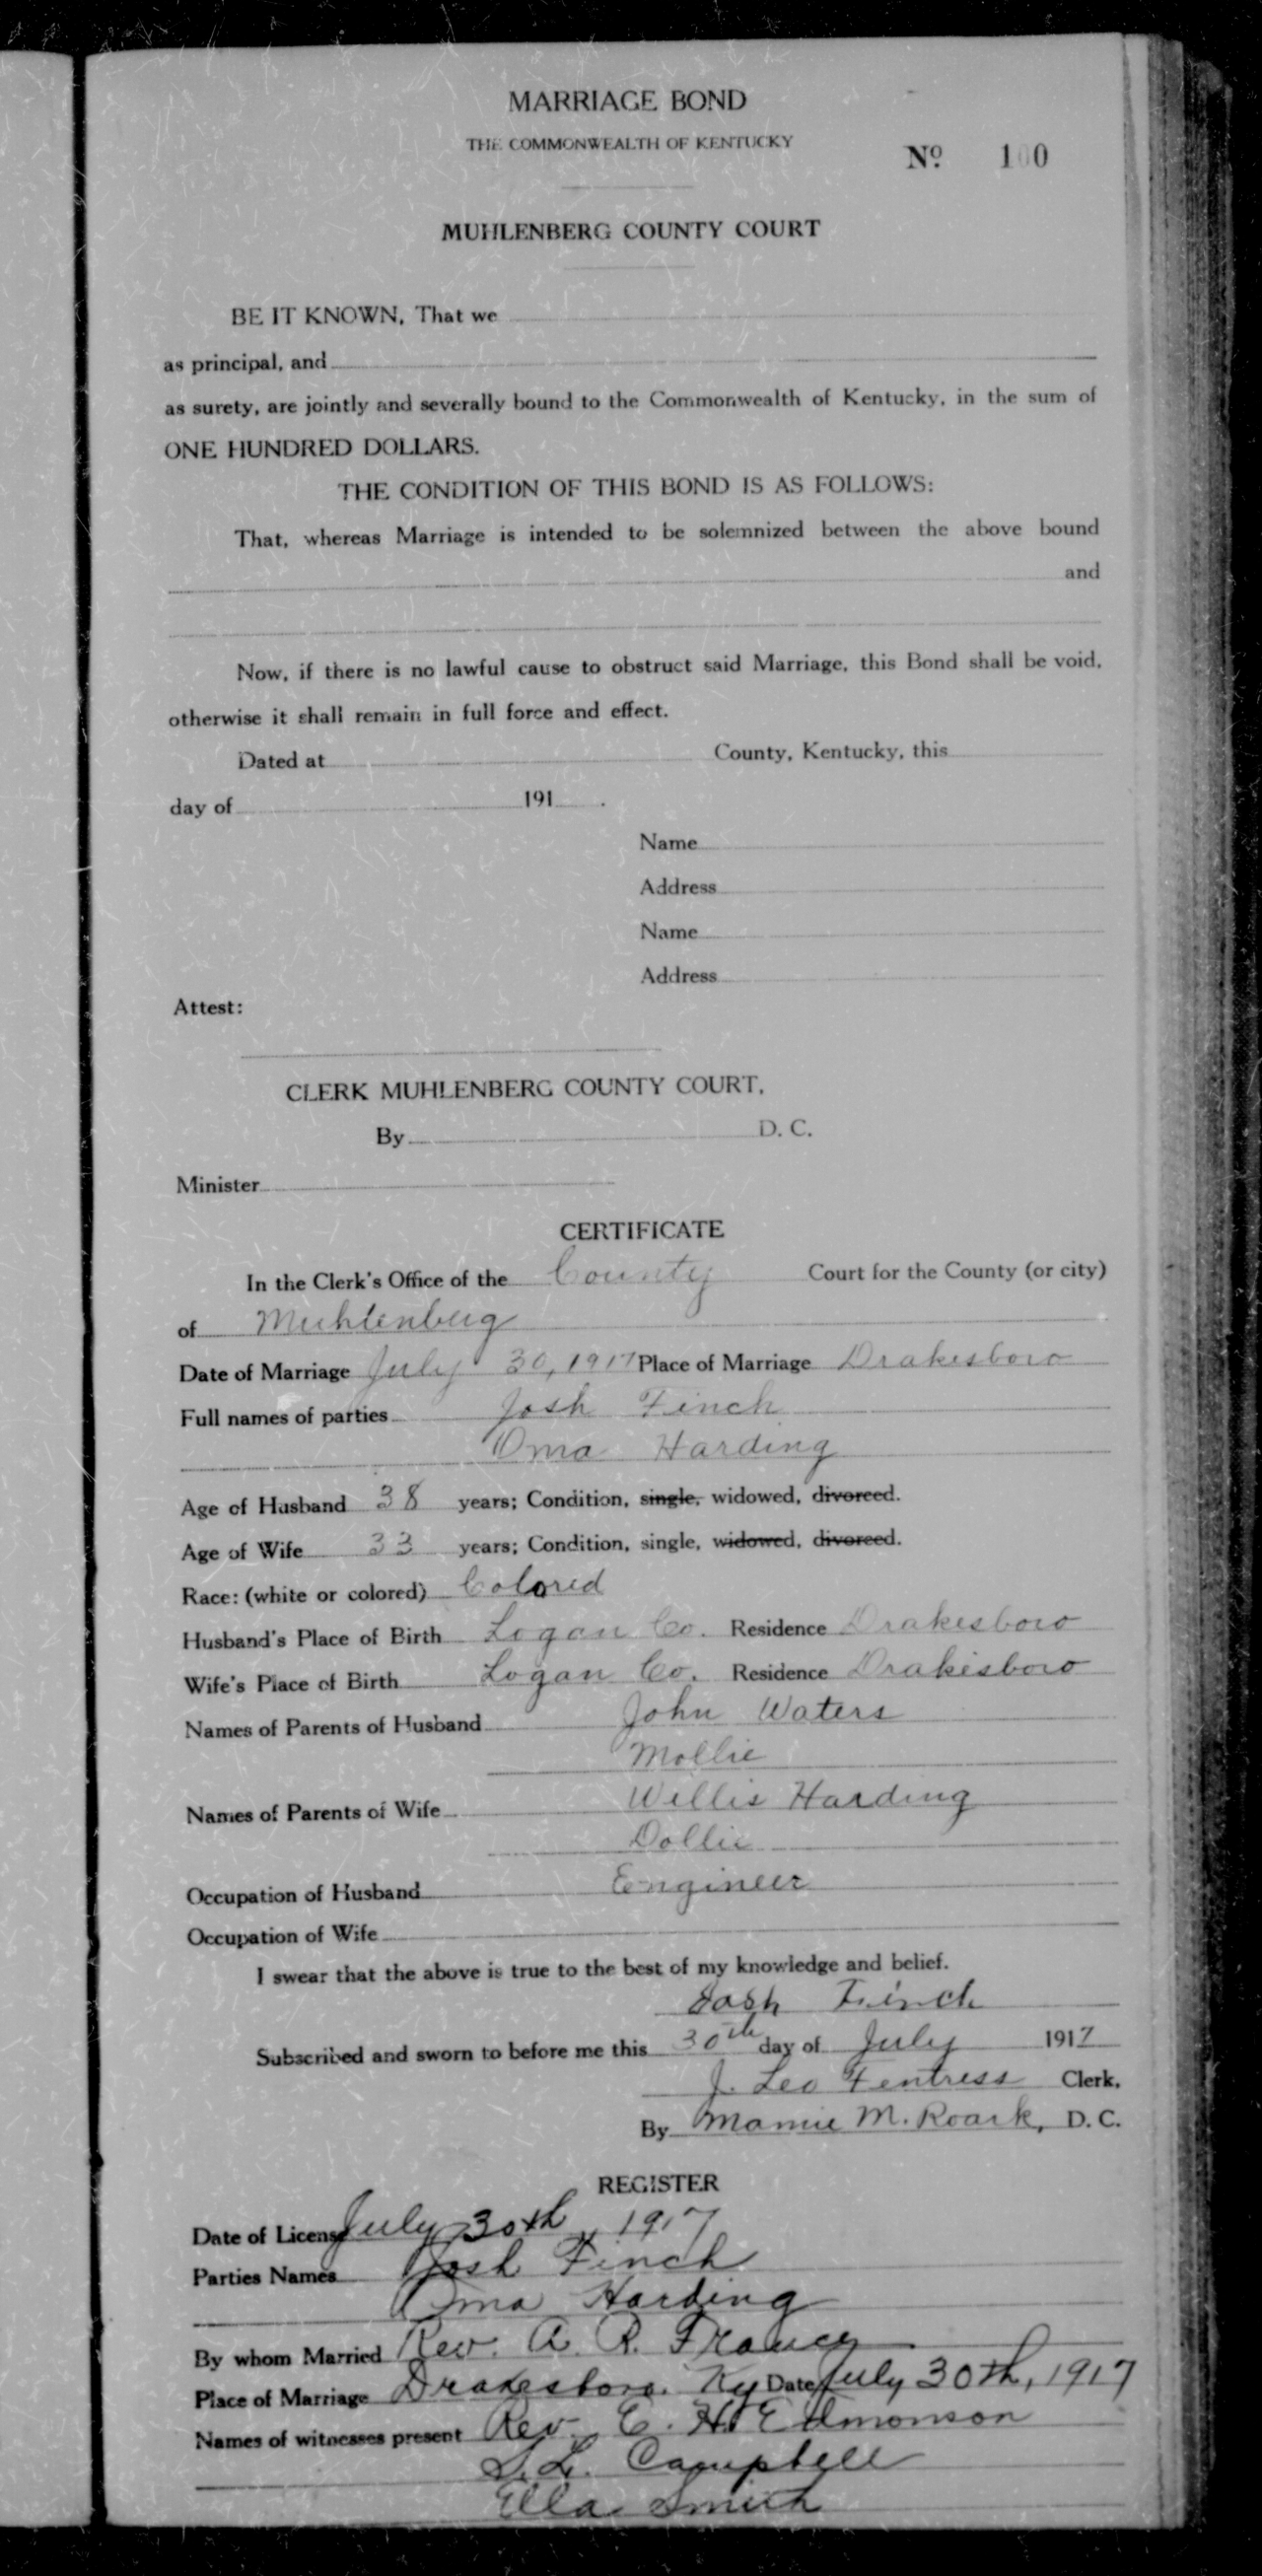 MARRIAGE BOND
THE COMMONWEALTH OF KENTUCKY
No. 100
MUHLENBERG COUNTY COURT
BE IT KNOWN, That we
as principal, and
as surety, are jointly and severally bound to the Commonwealth of Kentucky, in the sum of
ONE HUNDRED DOLLARS.
THE CONDITION OF THIS BOND IS AS FOLLOWS:
That, whereas Marriage is intended to be solemnized between the above bound
and
Now, if there is no lawful cause to obstruct said Marriage, this Bond shall be void,
otherwise it shall remain in full force and effect.
Dated at County, Kentucky, this
day of 191 .
Name
Address
Name
Address
Attest:
CLERK MUHLENBERG COUNTY COURT,
By D. C.
Minister
CERTIFICATE
In the Clerk's Office of the County Court for the County (or city)
of Muhlenberg
Date of Marriage July 30, 1917 Place of Marriage Drakesboro
Full names of parties Josh Finch
Oma Harding
Age of Husband 38 years; Condition, single, widowed, divorced.
Age of Wife 33 years; Condition, single, widowed, divorced.
Race: (white or colored) Colored
Husband's Place of Birth Logan Co. Residence Drakesboro
Wife's Place of Birth Logan Co. Residence Drakesboro
Names of Parents of Husband John Waters
Mollie
Names of Parents of Wife Willis Harding
Dollie
Occupation of Husband Engineer
Occupation of Wife
I swear that the above is true to the best of my knowledge and belief.
Josh Finch
Subscribed and sworn to before me this 30th day of July 1917
J. Leo Fentress Clerk,
By Mamie M. Roark, D. C.
REGISTER
Date of License July 30th, 1917
Parties Names Josh Finch
Oma Harding
By whom Married Rev. A. R.
Place of Marriage Drakesboro. Ky Date July 30th, 1917
Names of witnesses present Rev. C. H. Edmonson
S. L. Campbell
Ella Smith